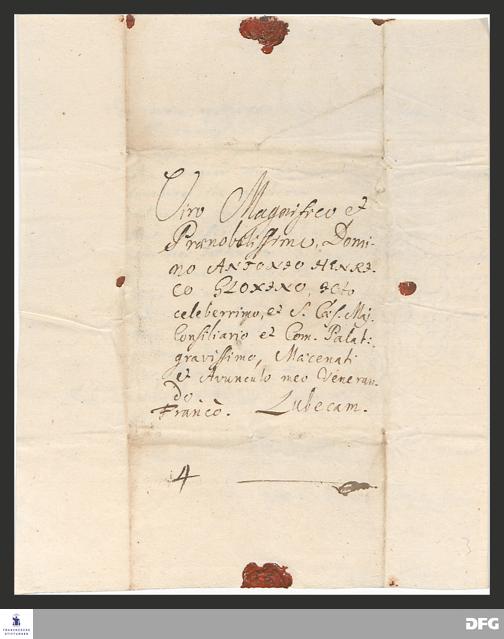 Viro Magnifico et
Prænobilissimo, Domi-
no ANTONIO HENRI-
CO GLOXINO, ICto
celeberrimo, et S. Cæs. Maj.
Consiliario et Com. Palat:
gravissimo, Mæcenati
et Avunculo meo Veneran-
do.
Franco. Lubecam.
4
3
FRANCKESCHE
STIFTUNGEN
DFG